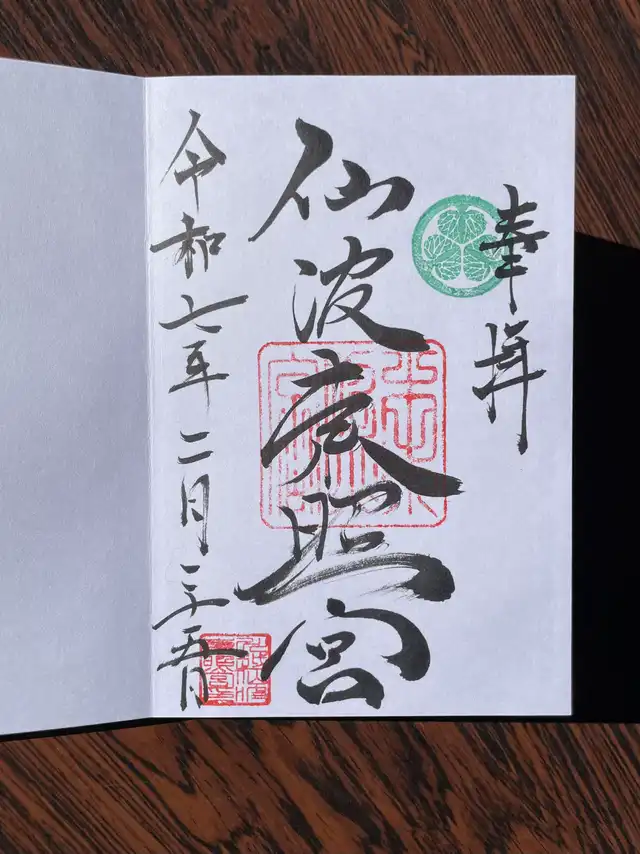 奉拝
仙波東照宮
令和七年二月二十五日